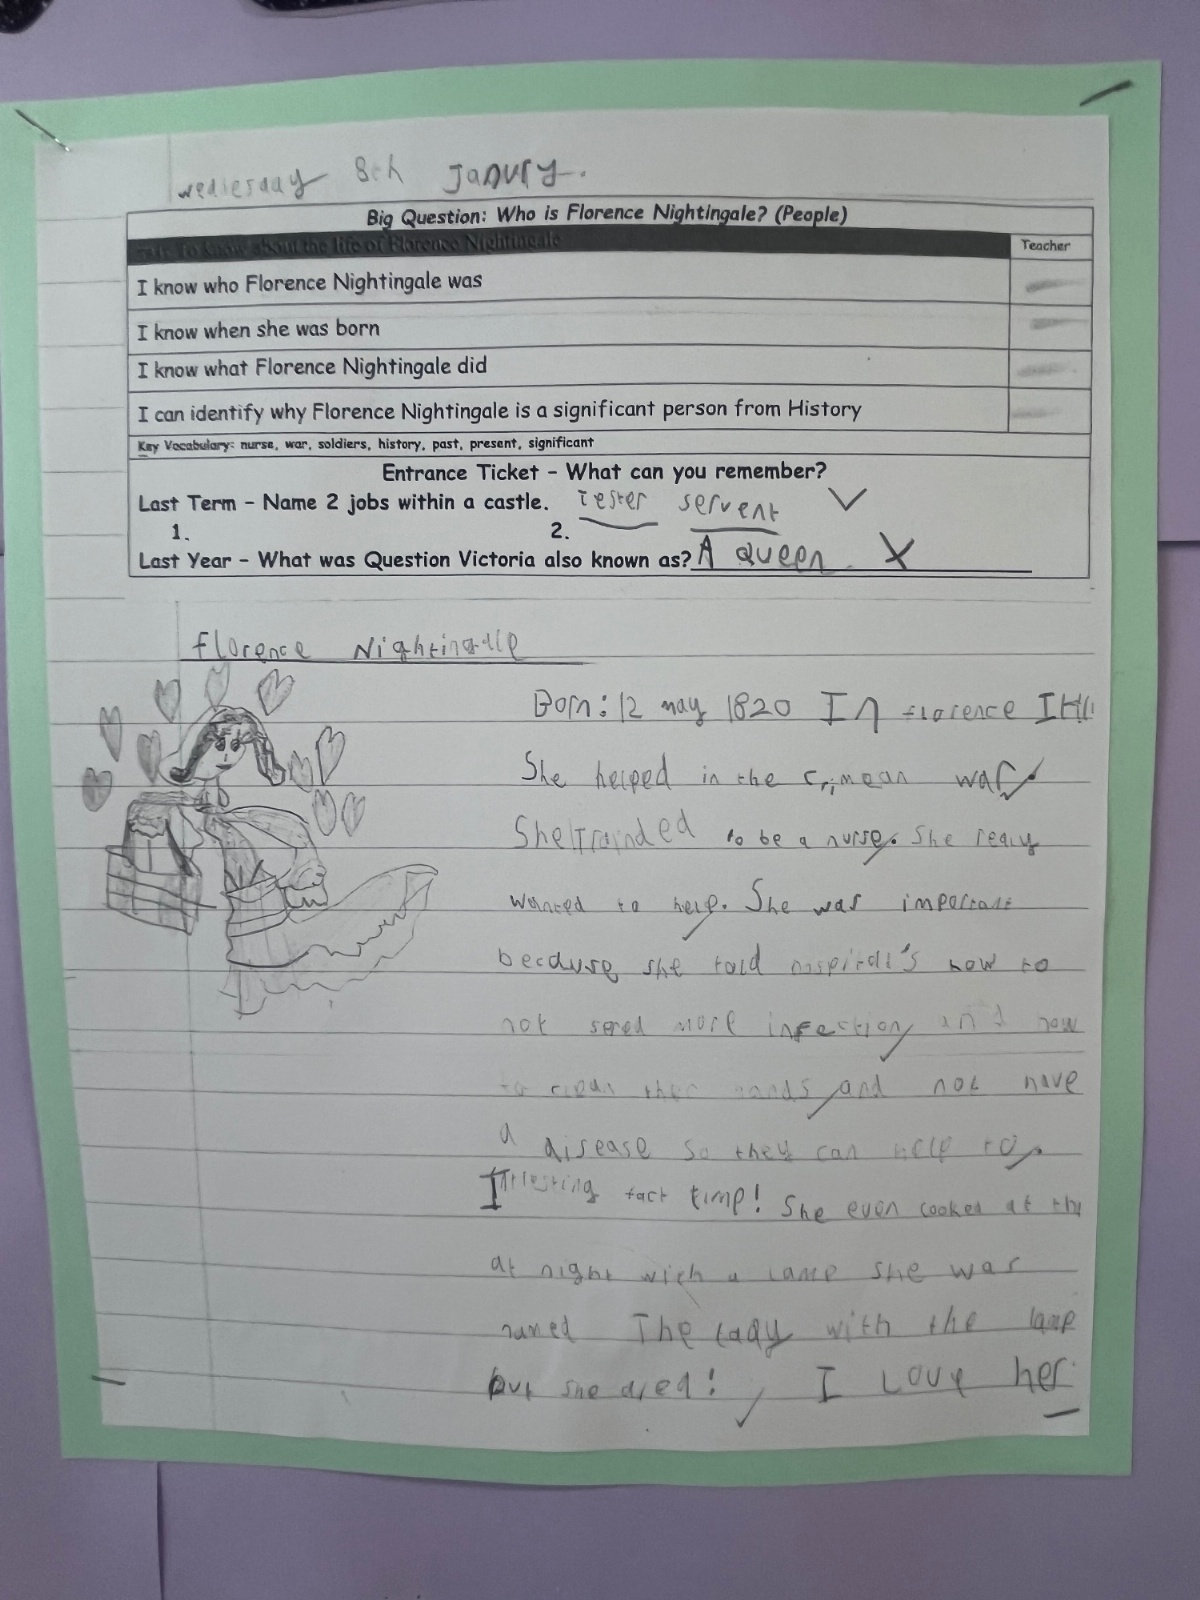 Wednesday 8th Janury.
Big Question: Who is Florence Nightingale? (People)
To know about the life of Florence Nightingale
Teacher
I know who Florence Nightingale was
I know when she was born
I know what Florence Nightingale did
I can identify why Florence Nightingale is a significant person from History
Key Vocabulary: nurse, war, soldiers, history, past, present, significant
Entrance Ticket - What can you remember?
Last Term - Name 2 jobs within a castle. Tester servent
1. 2.
Last Year - What was Question Victoria also known as? A queen.
Florence Nightingale
Born: 12 may 1820 In florence
She helped in the Crimean war
She Trainded to be a nurse. She realy
wanted to help. She was important
because she told hospital's how to
not spred more infection and how
to clean their hands and not have
a disease so they can help to.
Intresting fact time! She even cooked at the
at night with a lamp she was
named The lady with the lamp
but she died! I Love her